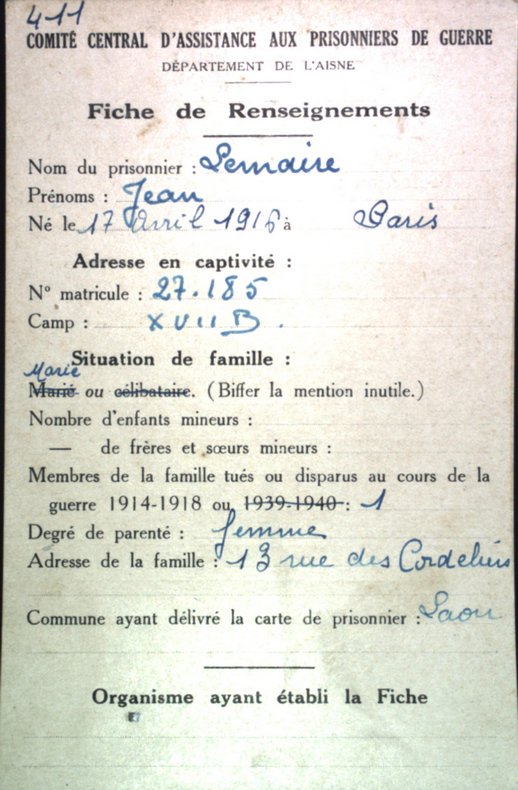 411
COMITÉ CENTRAL D'ASSISTANCE AUX PRISONNIERS DE GUERRE
DÉPARTEMENT DE L'AISNE
Fiche de Renseignements
Nom du prisonnier : Lemaire
Prénoms : Jean
Né le 17 Avril 1916 à Paris
Adresse en captivité :
N° matricule : 27.185
Camp : XVII B.
Situation de famille :
Marié
Marié ou célibataire. (Biffer la mention inutile.)
Nombre d'enfants mineurs :
— de frères et sœurs mineurs :
Membres de la famille tués ou disparus au cours de la
guerre 1914-1918 ou 1939-1940 : 1
Degré de parenté : femme
Adresse de la famille : 13 rue des Cordeliers
Commune ayant délivré la carte de prisonnier : Laon
Organisme ayant établi la Fiche